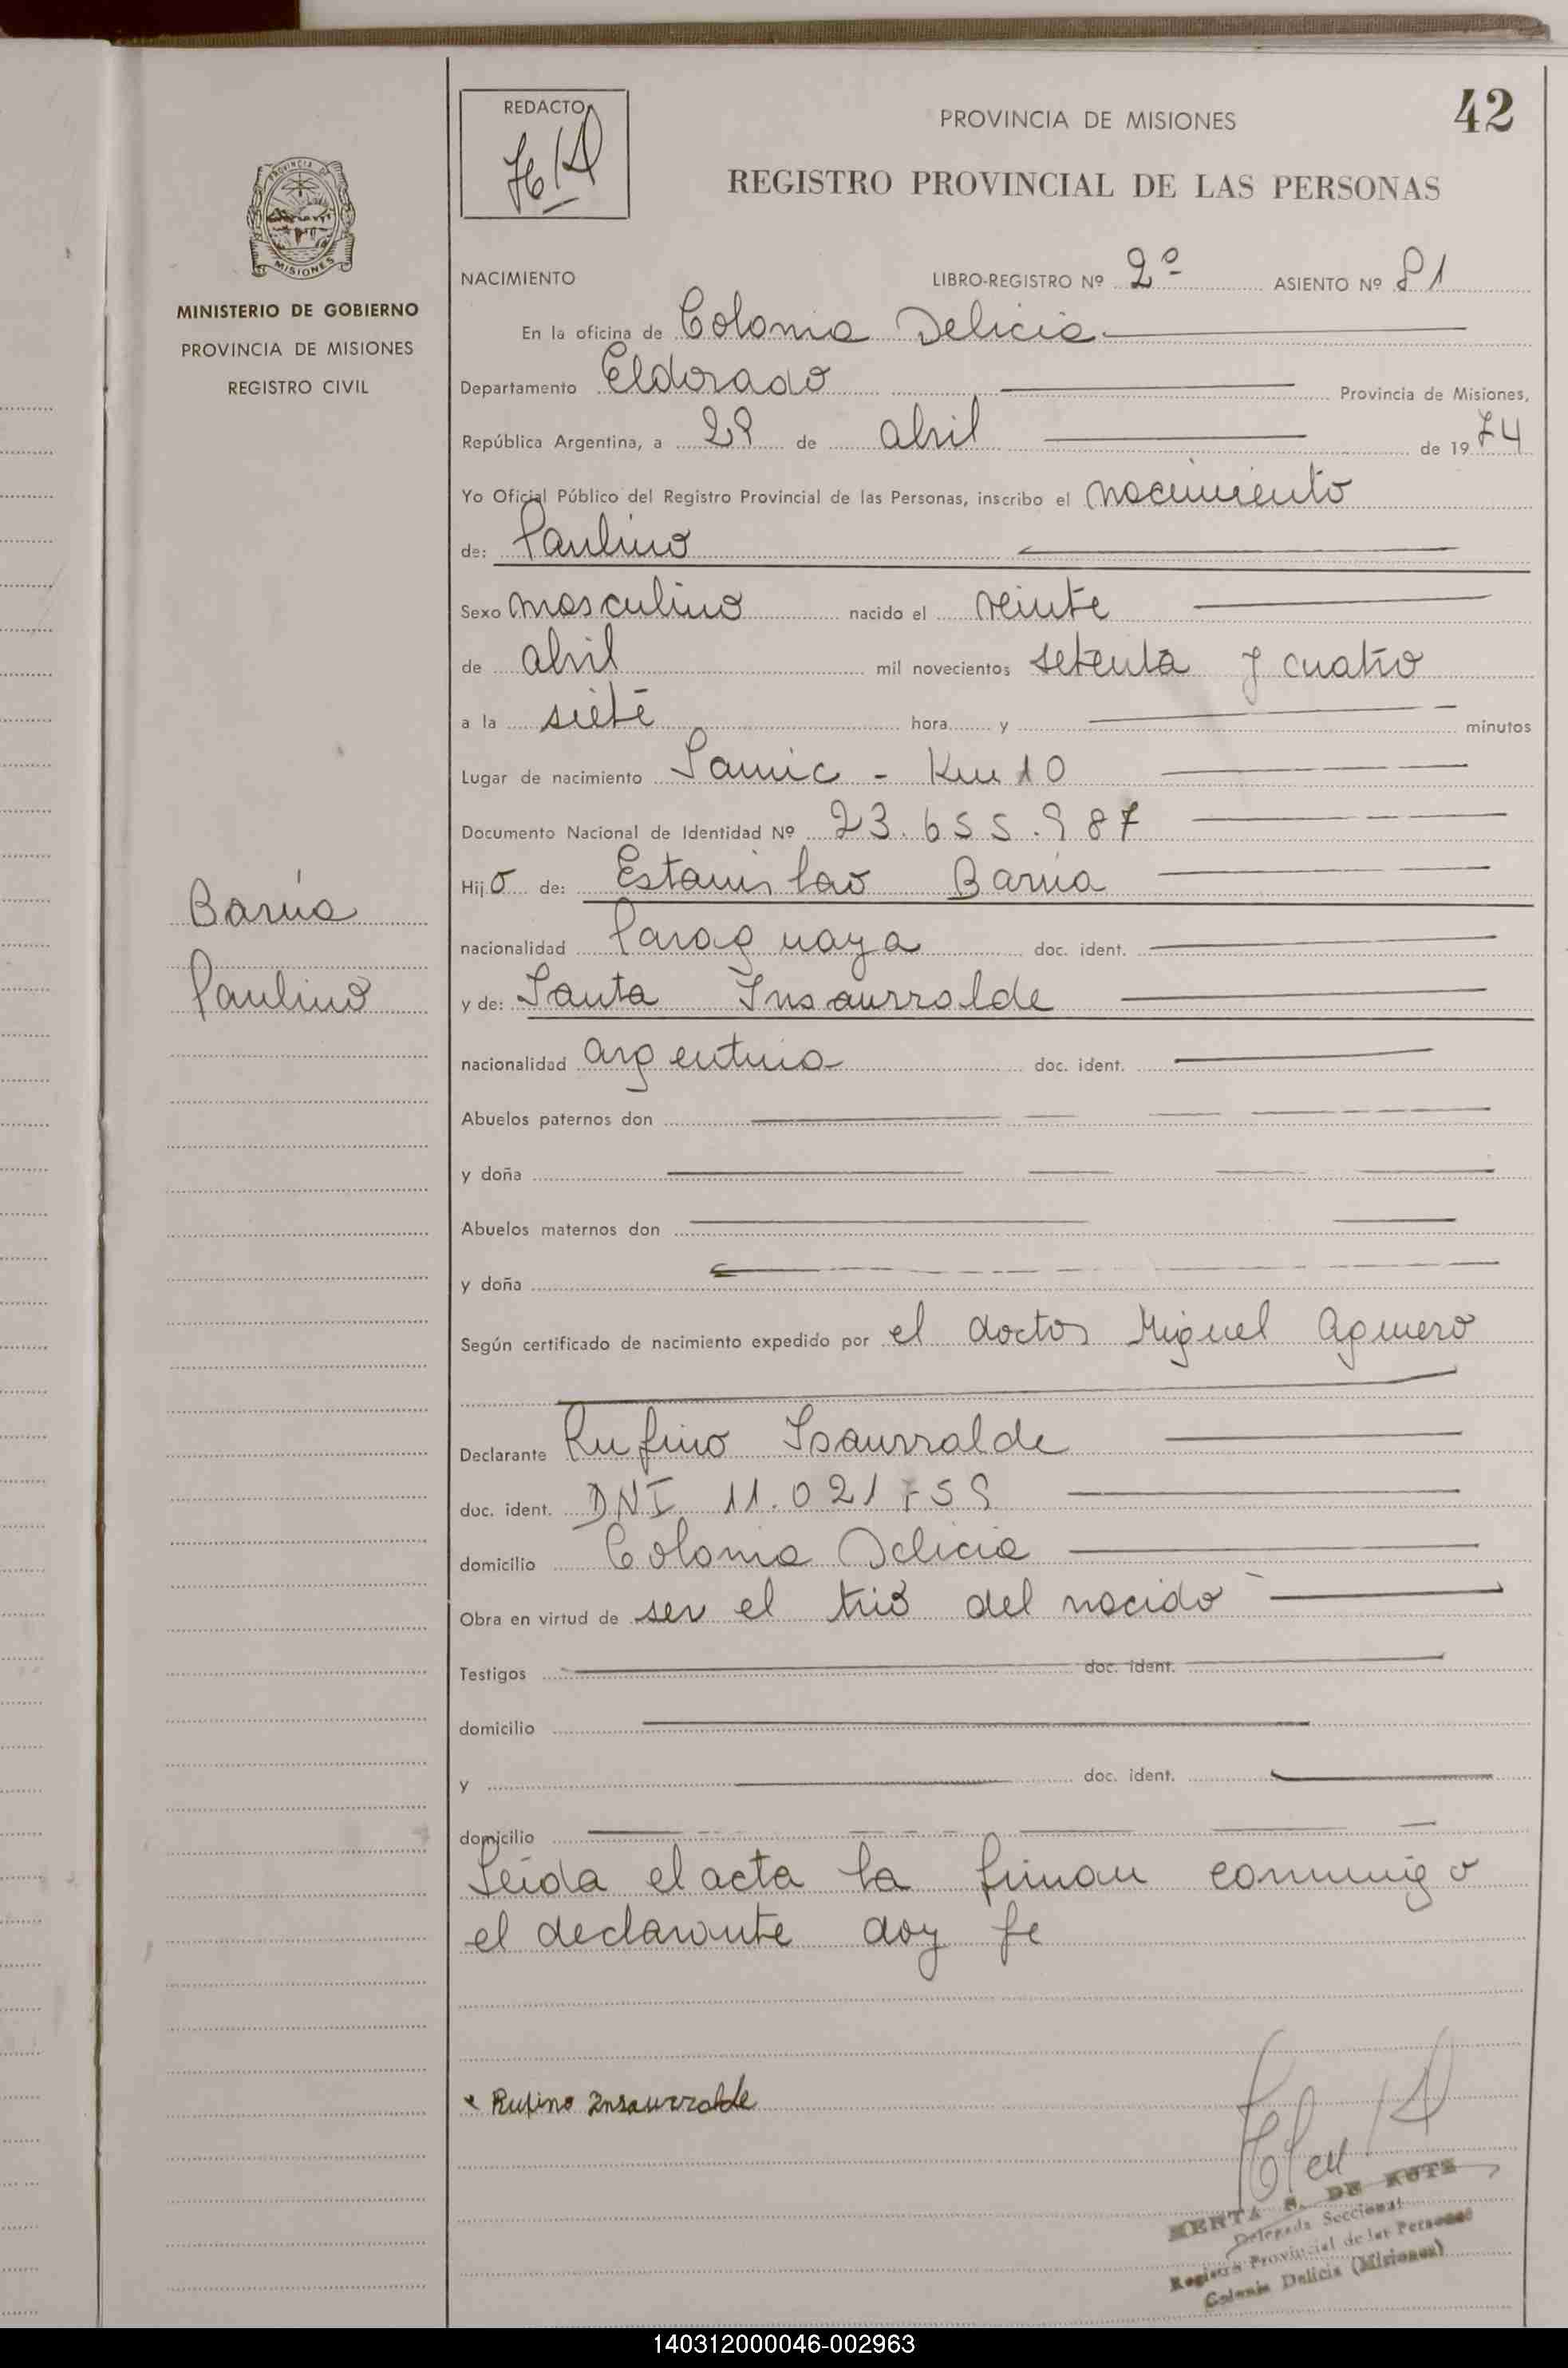 42
REDACTO
PROVINCIA DE MISIONES
REGISTRO PROVINCIAL DE LAS PERSONAS
PROVINCIA DE
MISIONES
MINISTERIO DE GOBIERNO
PROVINCIA DE MISIONES
REGISTRO CIVIL
Barúa
Paulino
NACIMIENTO LIBRO-REGISTRO Nº 2º ASIENTO Nº 81
En la oficina de Colonia Delicia
Departamento Eldorado Provincia de Misiones,
República Argentina, a 29 de abril de 1974
Yo Oficial Público del Registro Provincial de las Personas, inscribo el nacimiento
de: Paulino
Sexo masculino nacido el veinte
de abril mil novecientos setenta y cuatro
a la siete hora y minutos
Lugar de nacimiento Samic - Km 10
Documento Nacional de Identidad Nº 23.655.987
Hijo de: Estanislao Barúa
nacionalidad Paraguaya doc. ident.
y de: Santa Insaurralde
nacionalidad argentina doc. ident.
Abuelos paternos don
y doña
Abuelos maternos don
y doña
Según certificado de nacimiento expedido por el doctor Miguel Aguuero
Declarante Rufino Isaurralde
doc. ident. DNI 11.021
domicilio Colonia Delicia
Obra en virtud de ser el tio del nacido
Testigos doc. ident.
domicilio
y doc. ident.
domicilio
Leida el acta la firman conmigo
el declarante doy fe
Rufino Insaurralde
DE
Delegada Seccional
Registro Provincial de las Personas
Colonia Delicia (Misiones)
140312000046-002963